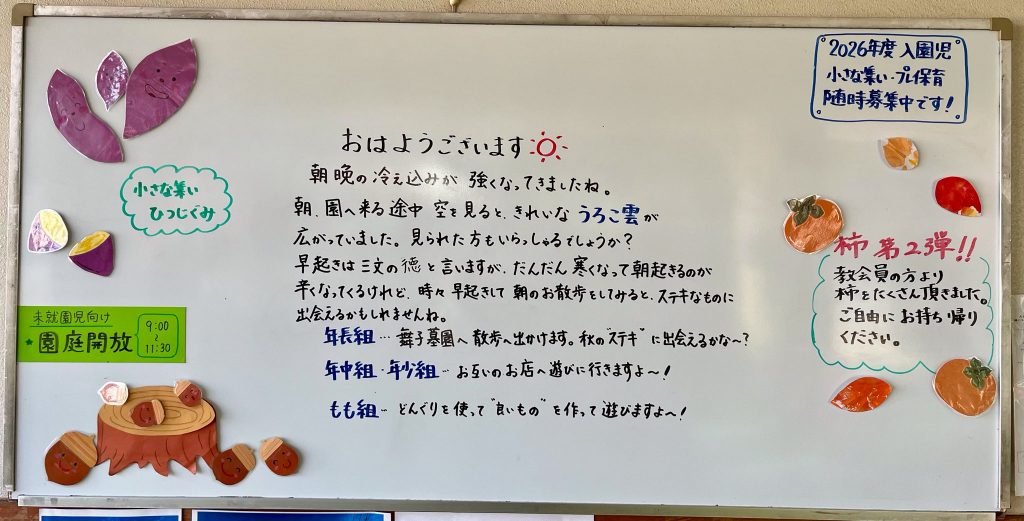 2026年度 入園児
小さな集い・プレ保育
随時募集中です!
おはようございます
朝晩の冷え込みが 強くなってきましたね。
朝、園へ来る途中 空を見ると、きれいな うろこ雲が
広がっていました。見られた方もいらっしゃるでしょうか?
早起きは三文の徳と言いますが、だんだん寒くなって朝起きるのが
辛くなってくるけれど、時々早起きして朝のお散歩をしてみると、ステキなものに
出会えるかもしれませんね。
年長組… 舞子墓園へ散歩へ出かけます。秋の"ステキ"に出会えるかな〜?
年中組・年少組… お互いのお店へ遊びに行きますよ〜!
もも組… どんぐりを使って"良いもの"を作って遊びますよ〜!
小さな集い
ひつじぐみ
未就園児向け
★園庭開放
9:00
〜
11:30
柿 第2弾!!
教会員の方より
柿をたくさん頂きました。
ご自由にお持ち帰り
ください。